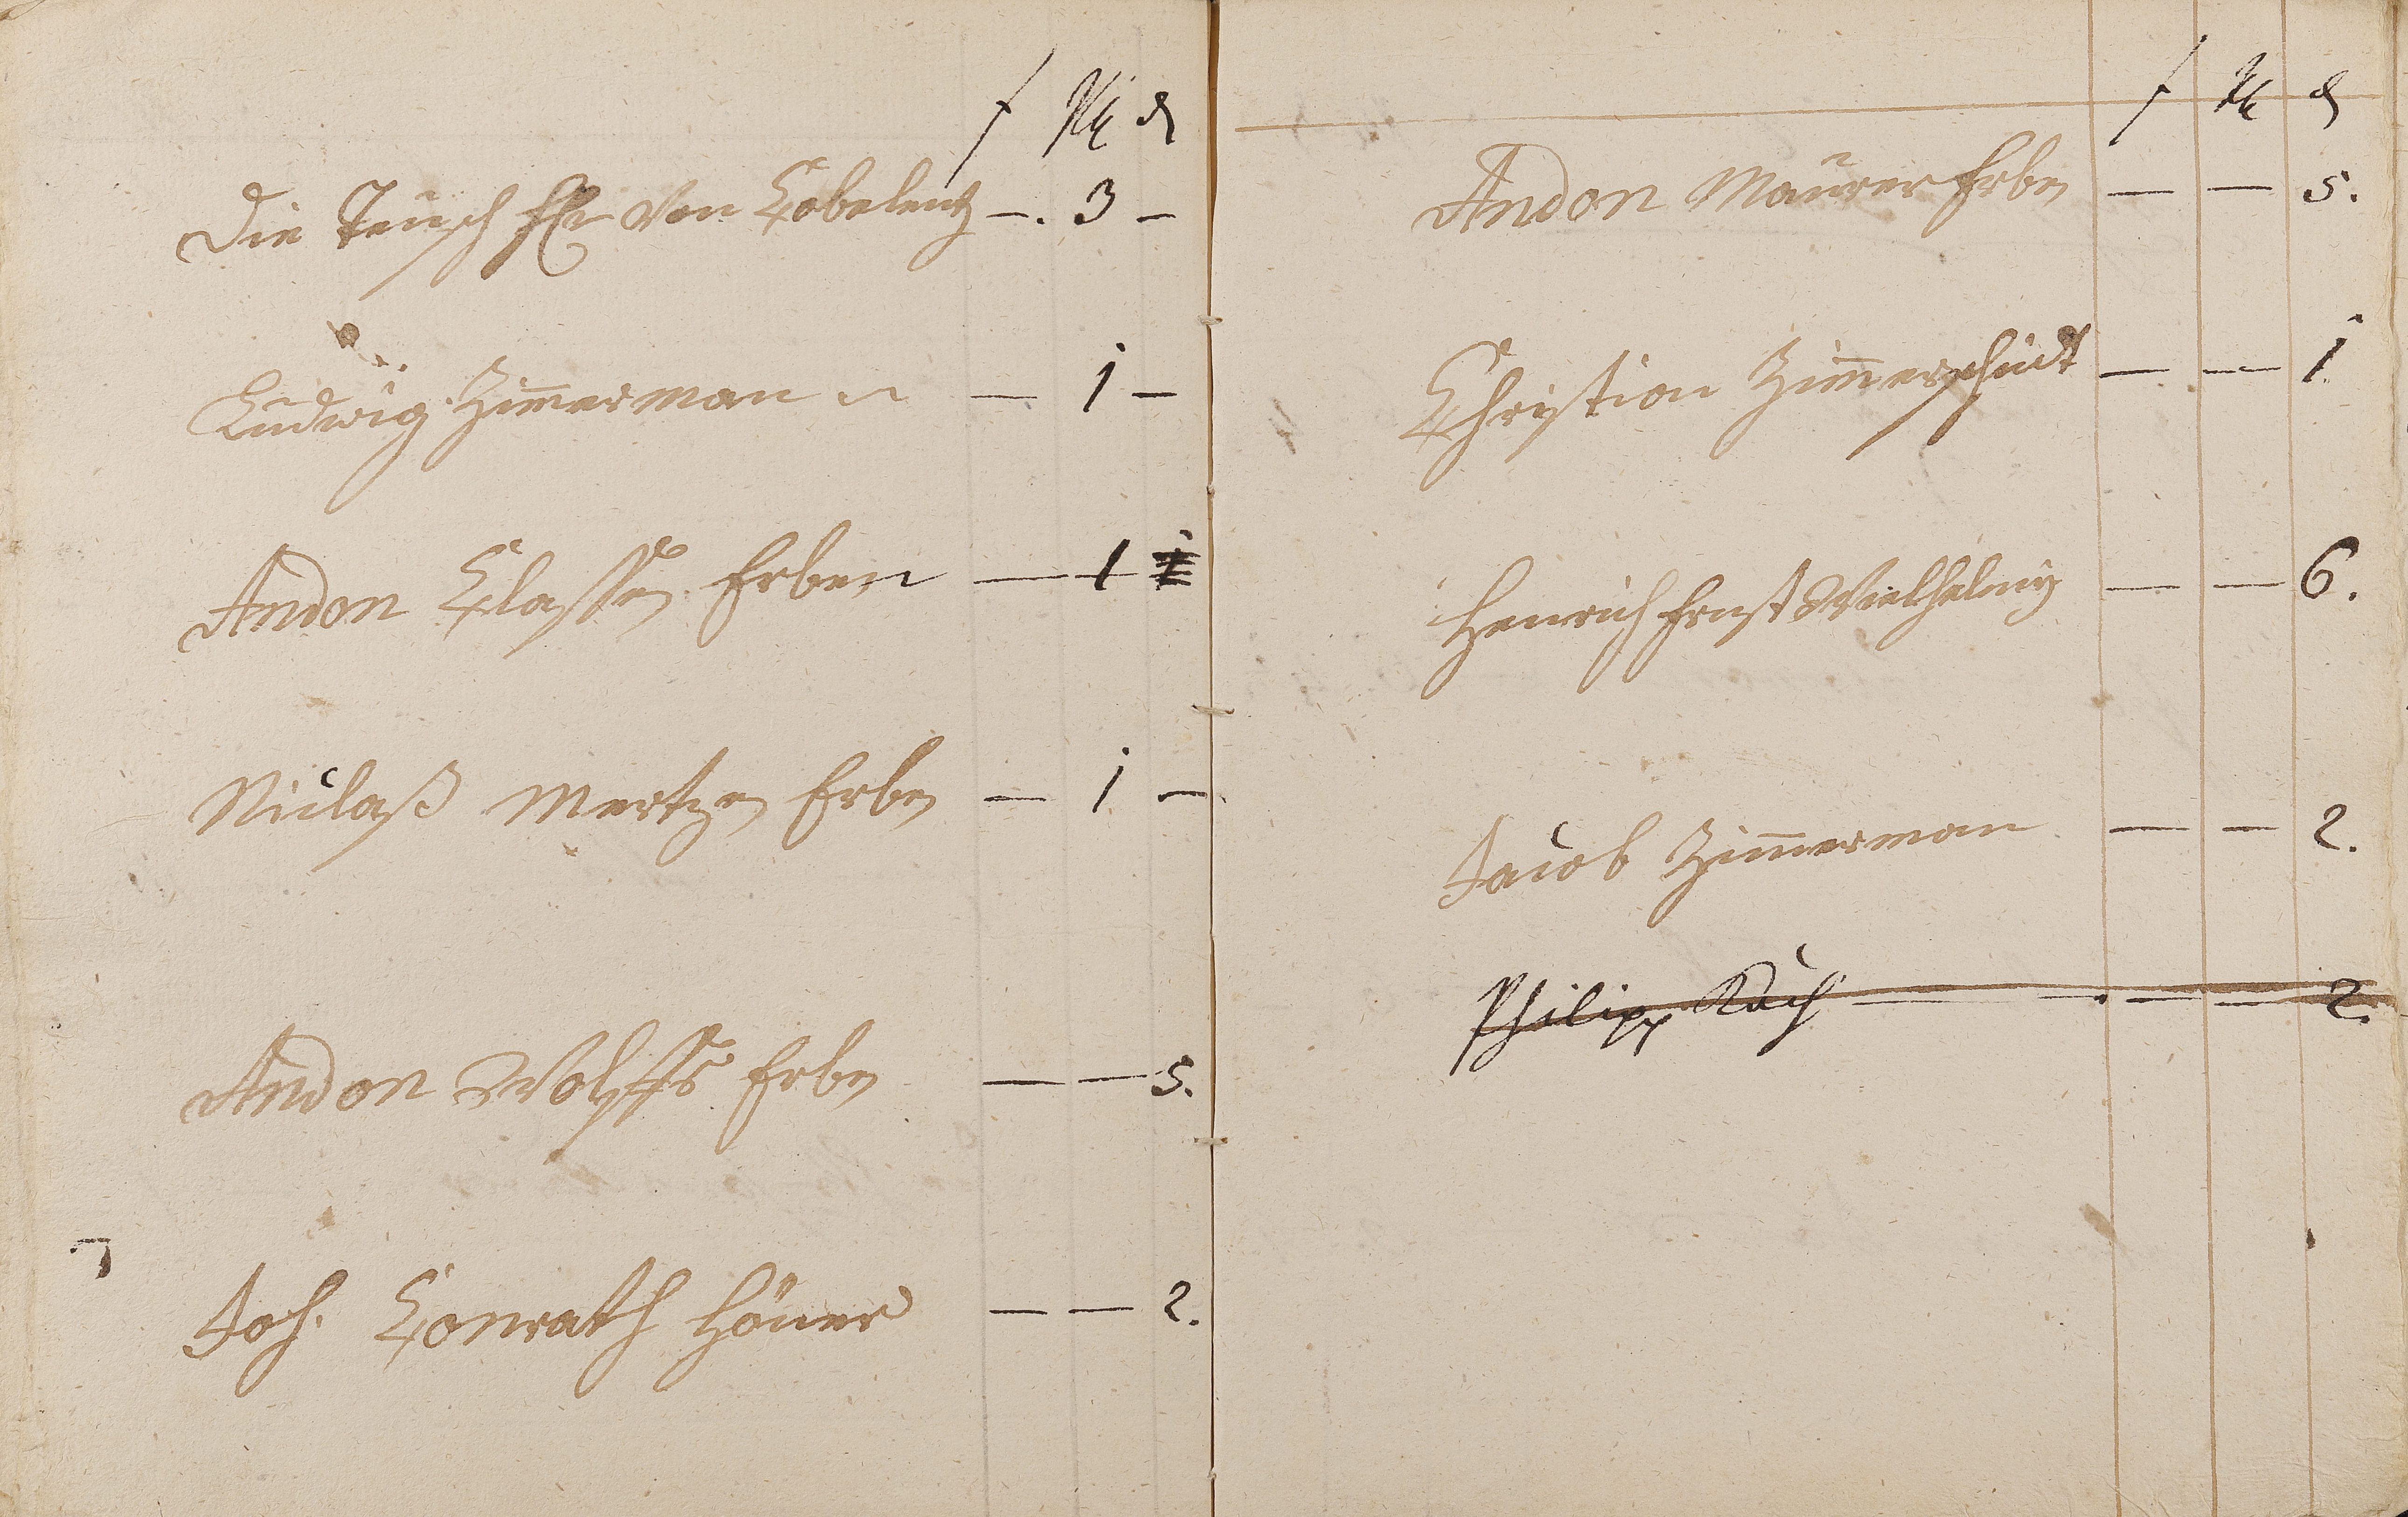 f Xr d
Die Teüsch HEr Von Cobelentz -. 3 -
Ludwig Zimmerman — 1 -
Andon Classen Erben — 1
Niclaß Mertzen Erben — 1 —
Andon Wolffs Erben — — 5.
Joh. Conrath Höner — — 2.
f Xr d
Andon Maürer Erben — — 5.
Christian — — 1
Henrich Ernst Wielhelmy — — 6.
Jacob Zimmerman — — 2.
Philipp — — — 2.